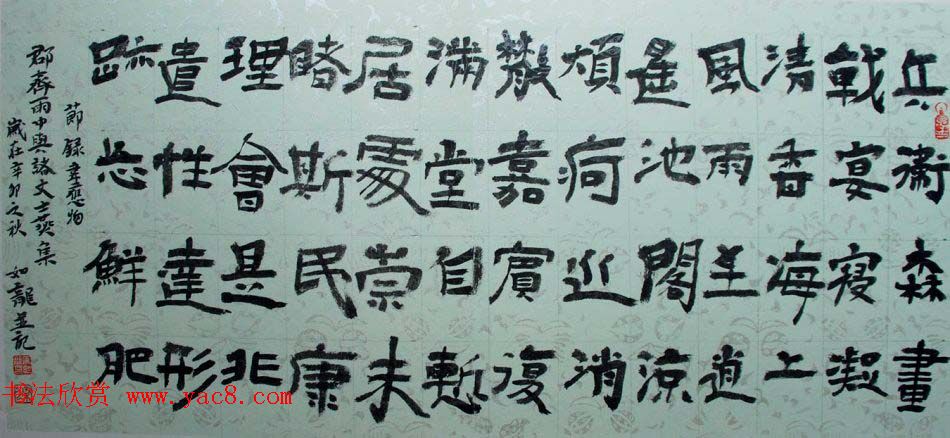 兵衛森畫
戟宴寢凝
清香海上
風雨至逍
遙池閣涼
煩疴近消
散嘉賓復
滿堂自慙
居處崇未
睹斯民康
理會是非
遣性達形
跡忘鮮肥
節錄韋應物
郡齋雨中與諸文士燕集
歲在辛卯之秋 如龍並記
书法欣赏 www.yac8.com